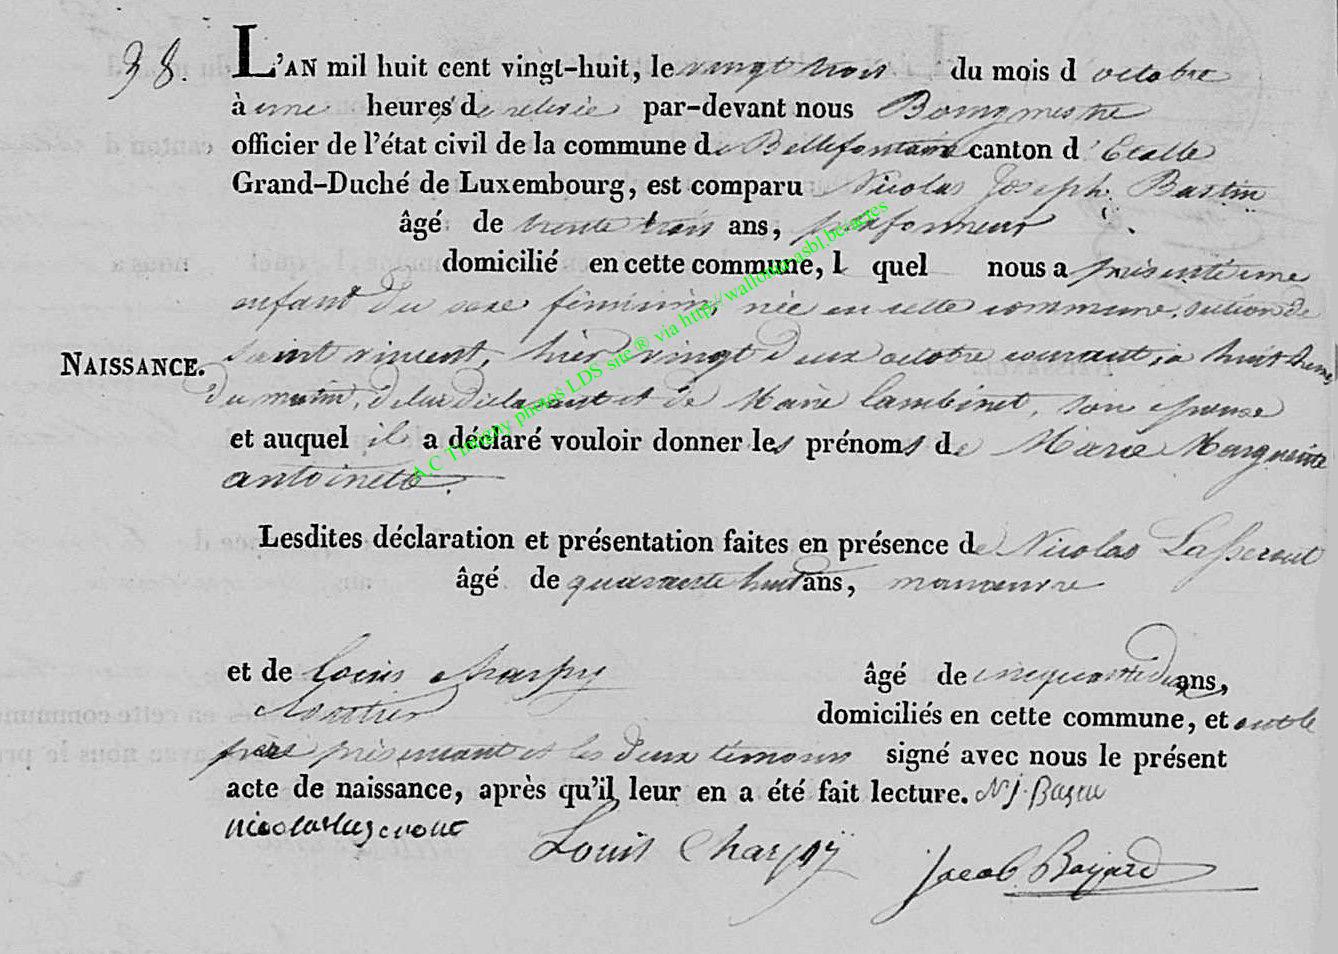 38. L'AN mil huit cent vingt-huit, le vingt trois du mois d octobre
à une heures de relevée par-devant nous Bourgmestre
officier de l'état civil de la commune de Bellefontaine canton d'Etalle
Grand-Duché de Luxembourg, est comparu Nicolas Joseph Bastin
âgé de trente trois ans, plafonneur
domicilié en cette commune, l quel nous a présenté une
enfant du sexe féminin, née en cette commune, section de
NAISSANCE. Saint vincent, hier vingt deux octobre courant, à huit heures
du matin, de lui déclarant et de Marie Lambinet, son epouse
et auquel il a déclaré vouloir donner les prénoms de Marie Marguerite
antoinete.
Lesdites déclaration et présentation faites en présence de Nicolas Lasseront
âgé de quarante huit ans, manœuvre
et de Louis Charpy âgé de cinquante deux ans,
cloutier domiciliés en cette commune, et ont le
père présentant et les deux témoins signé avec nous le présent
acte de naissance, après qu'il leur en a été fait lecture. N J. Bastin
nicolas lasseront Louis Charpÿ Jacob Bayard
A C Thibigny photos LDS site ® via http://wallonia-asbl.be/actes